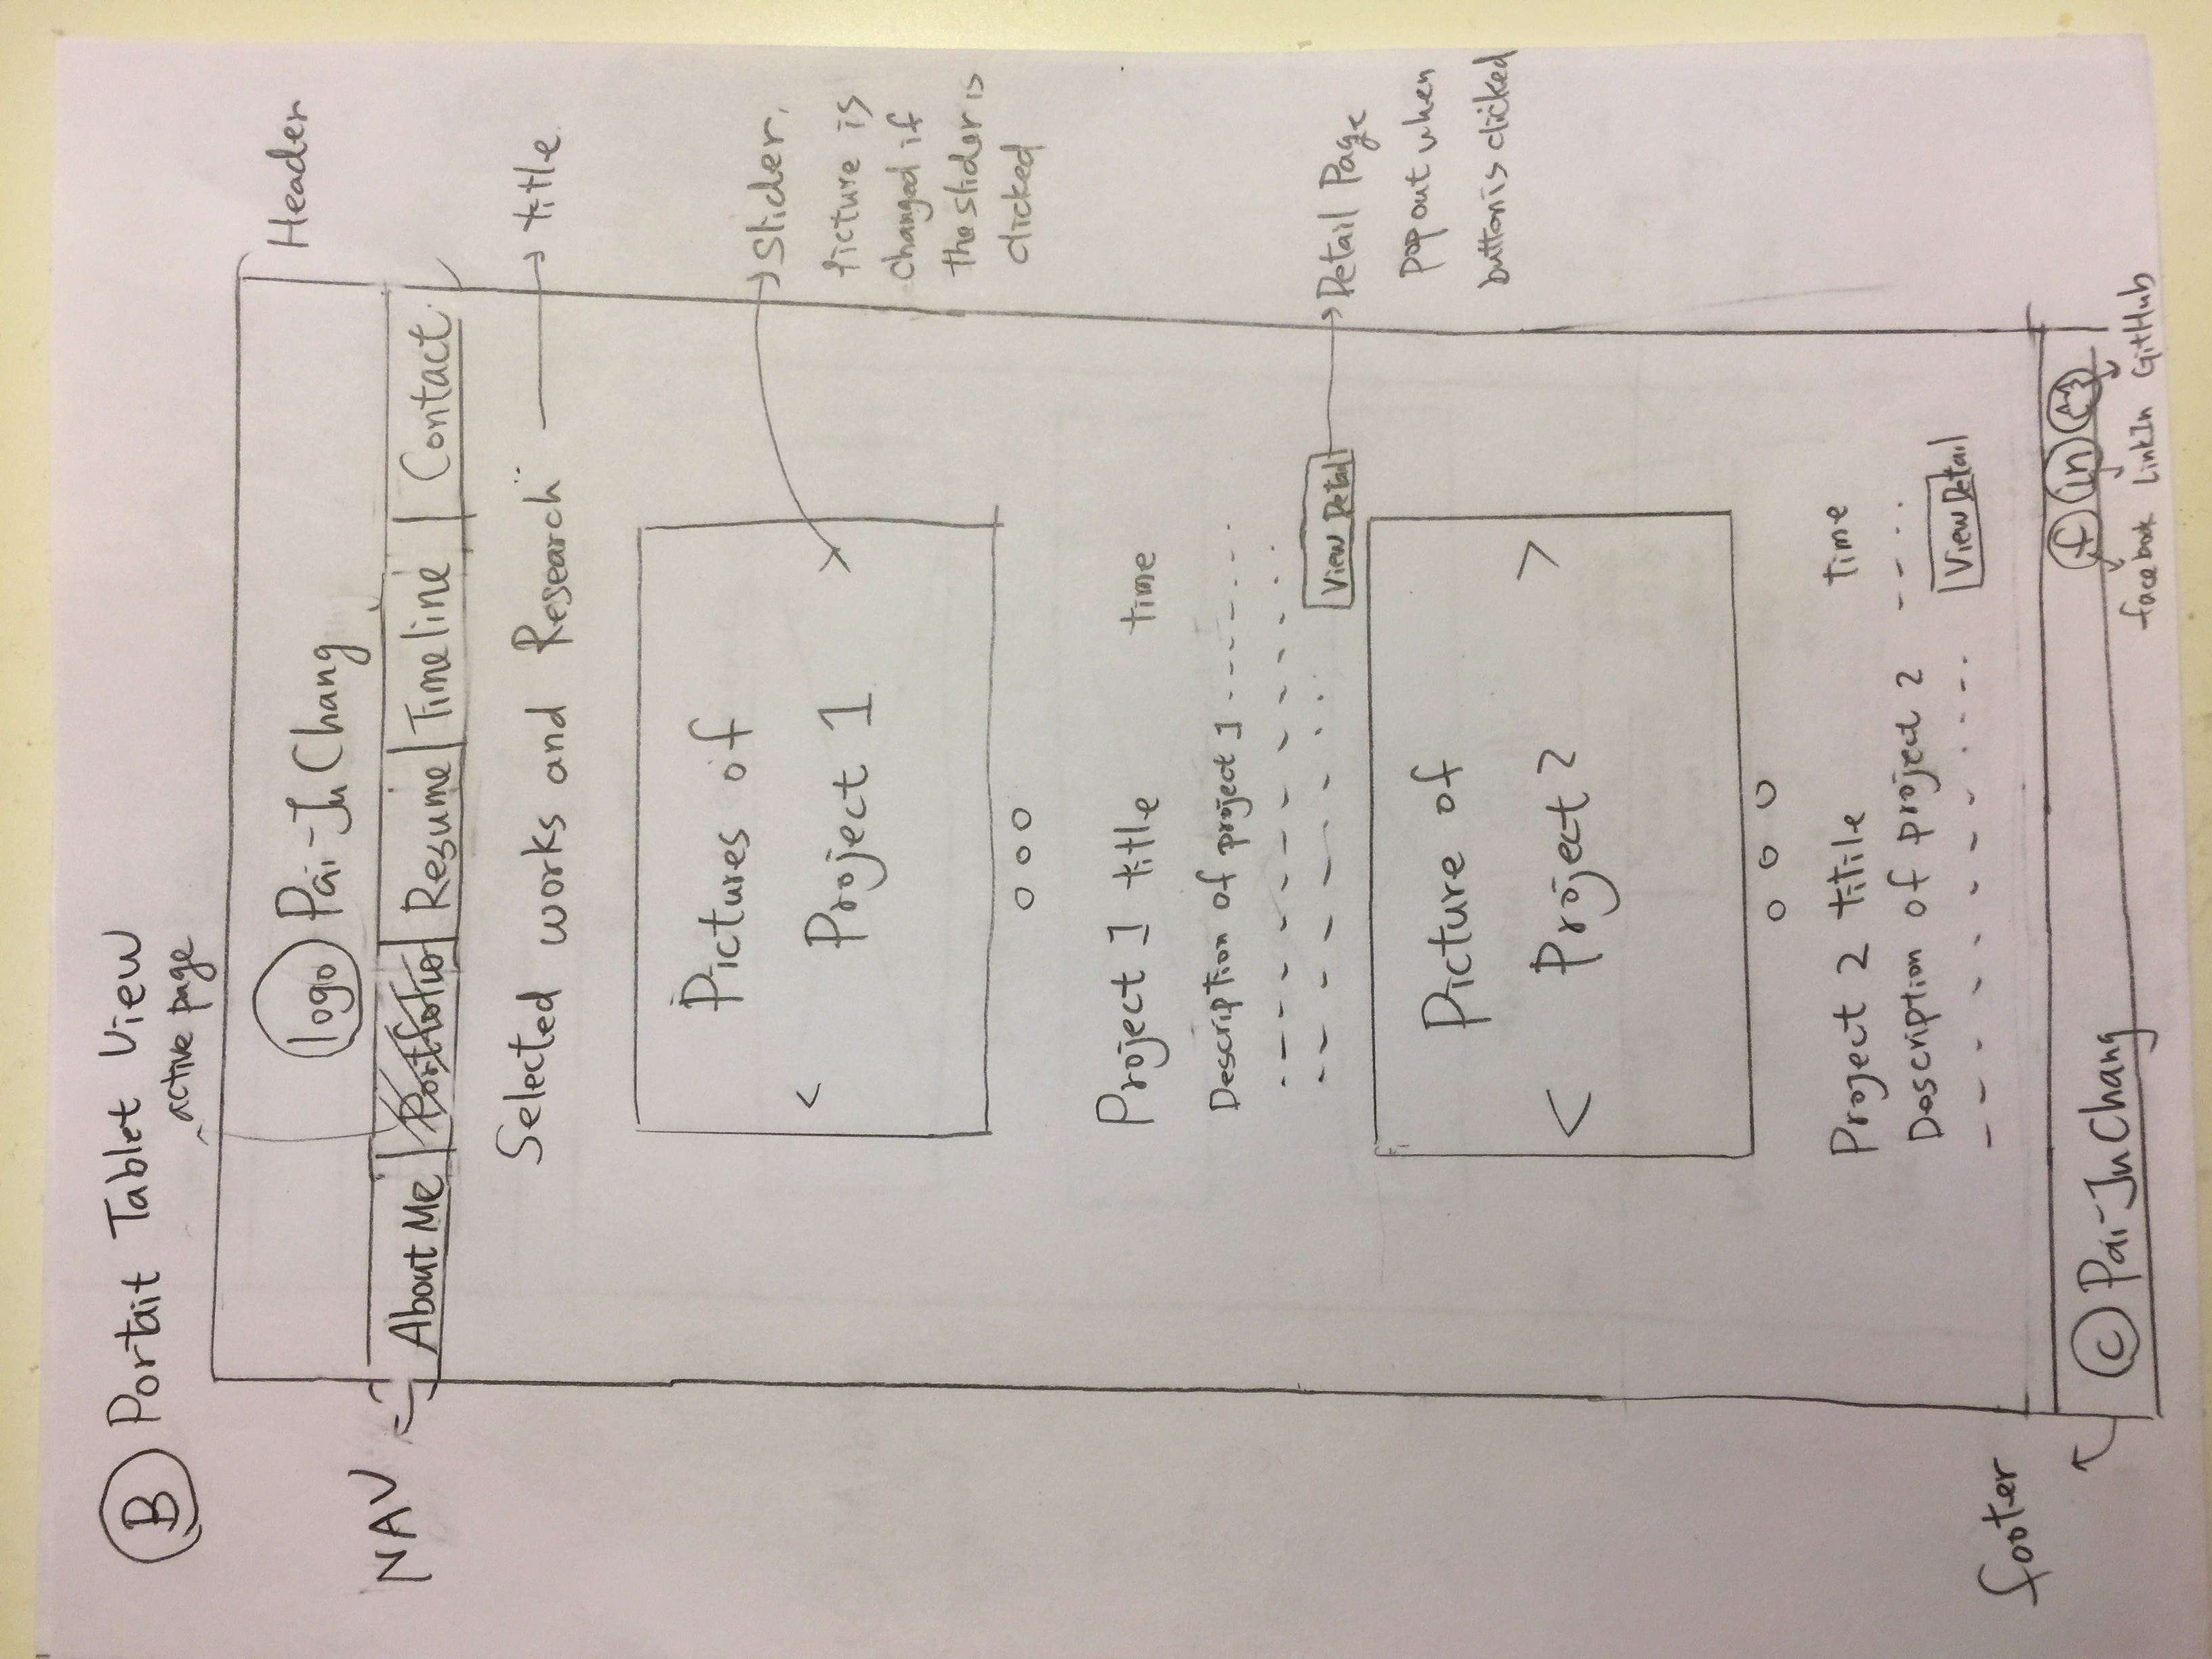 B Portait Tablet View
active page
logo Pai-Ju Chang
Header
NAV
About Me Portfolio Resume Timeline Contact
Selected works and Research
title
Pictures of
Project 1
< >
Slider,
picture is
changed if
the slider is
clicked
Project 1 title time
Description of project 1
View Detail
Detail Page
pop out when
button is clicked
Picture of
Project 2
< >
Project 2 titile time
Description of project 2
View Detail
footer
© Pai-Ju Chang
f in
facebook LinkIn GitHub